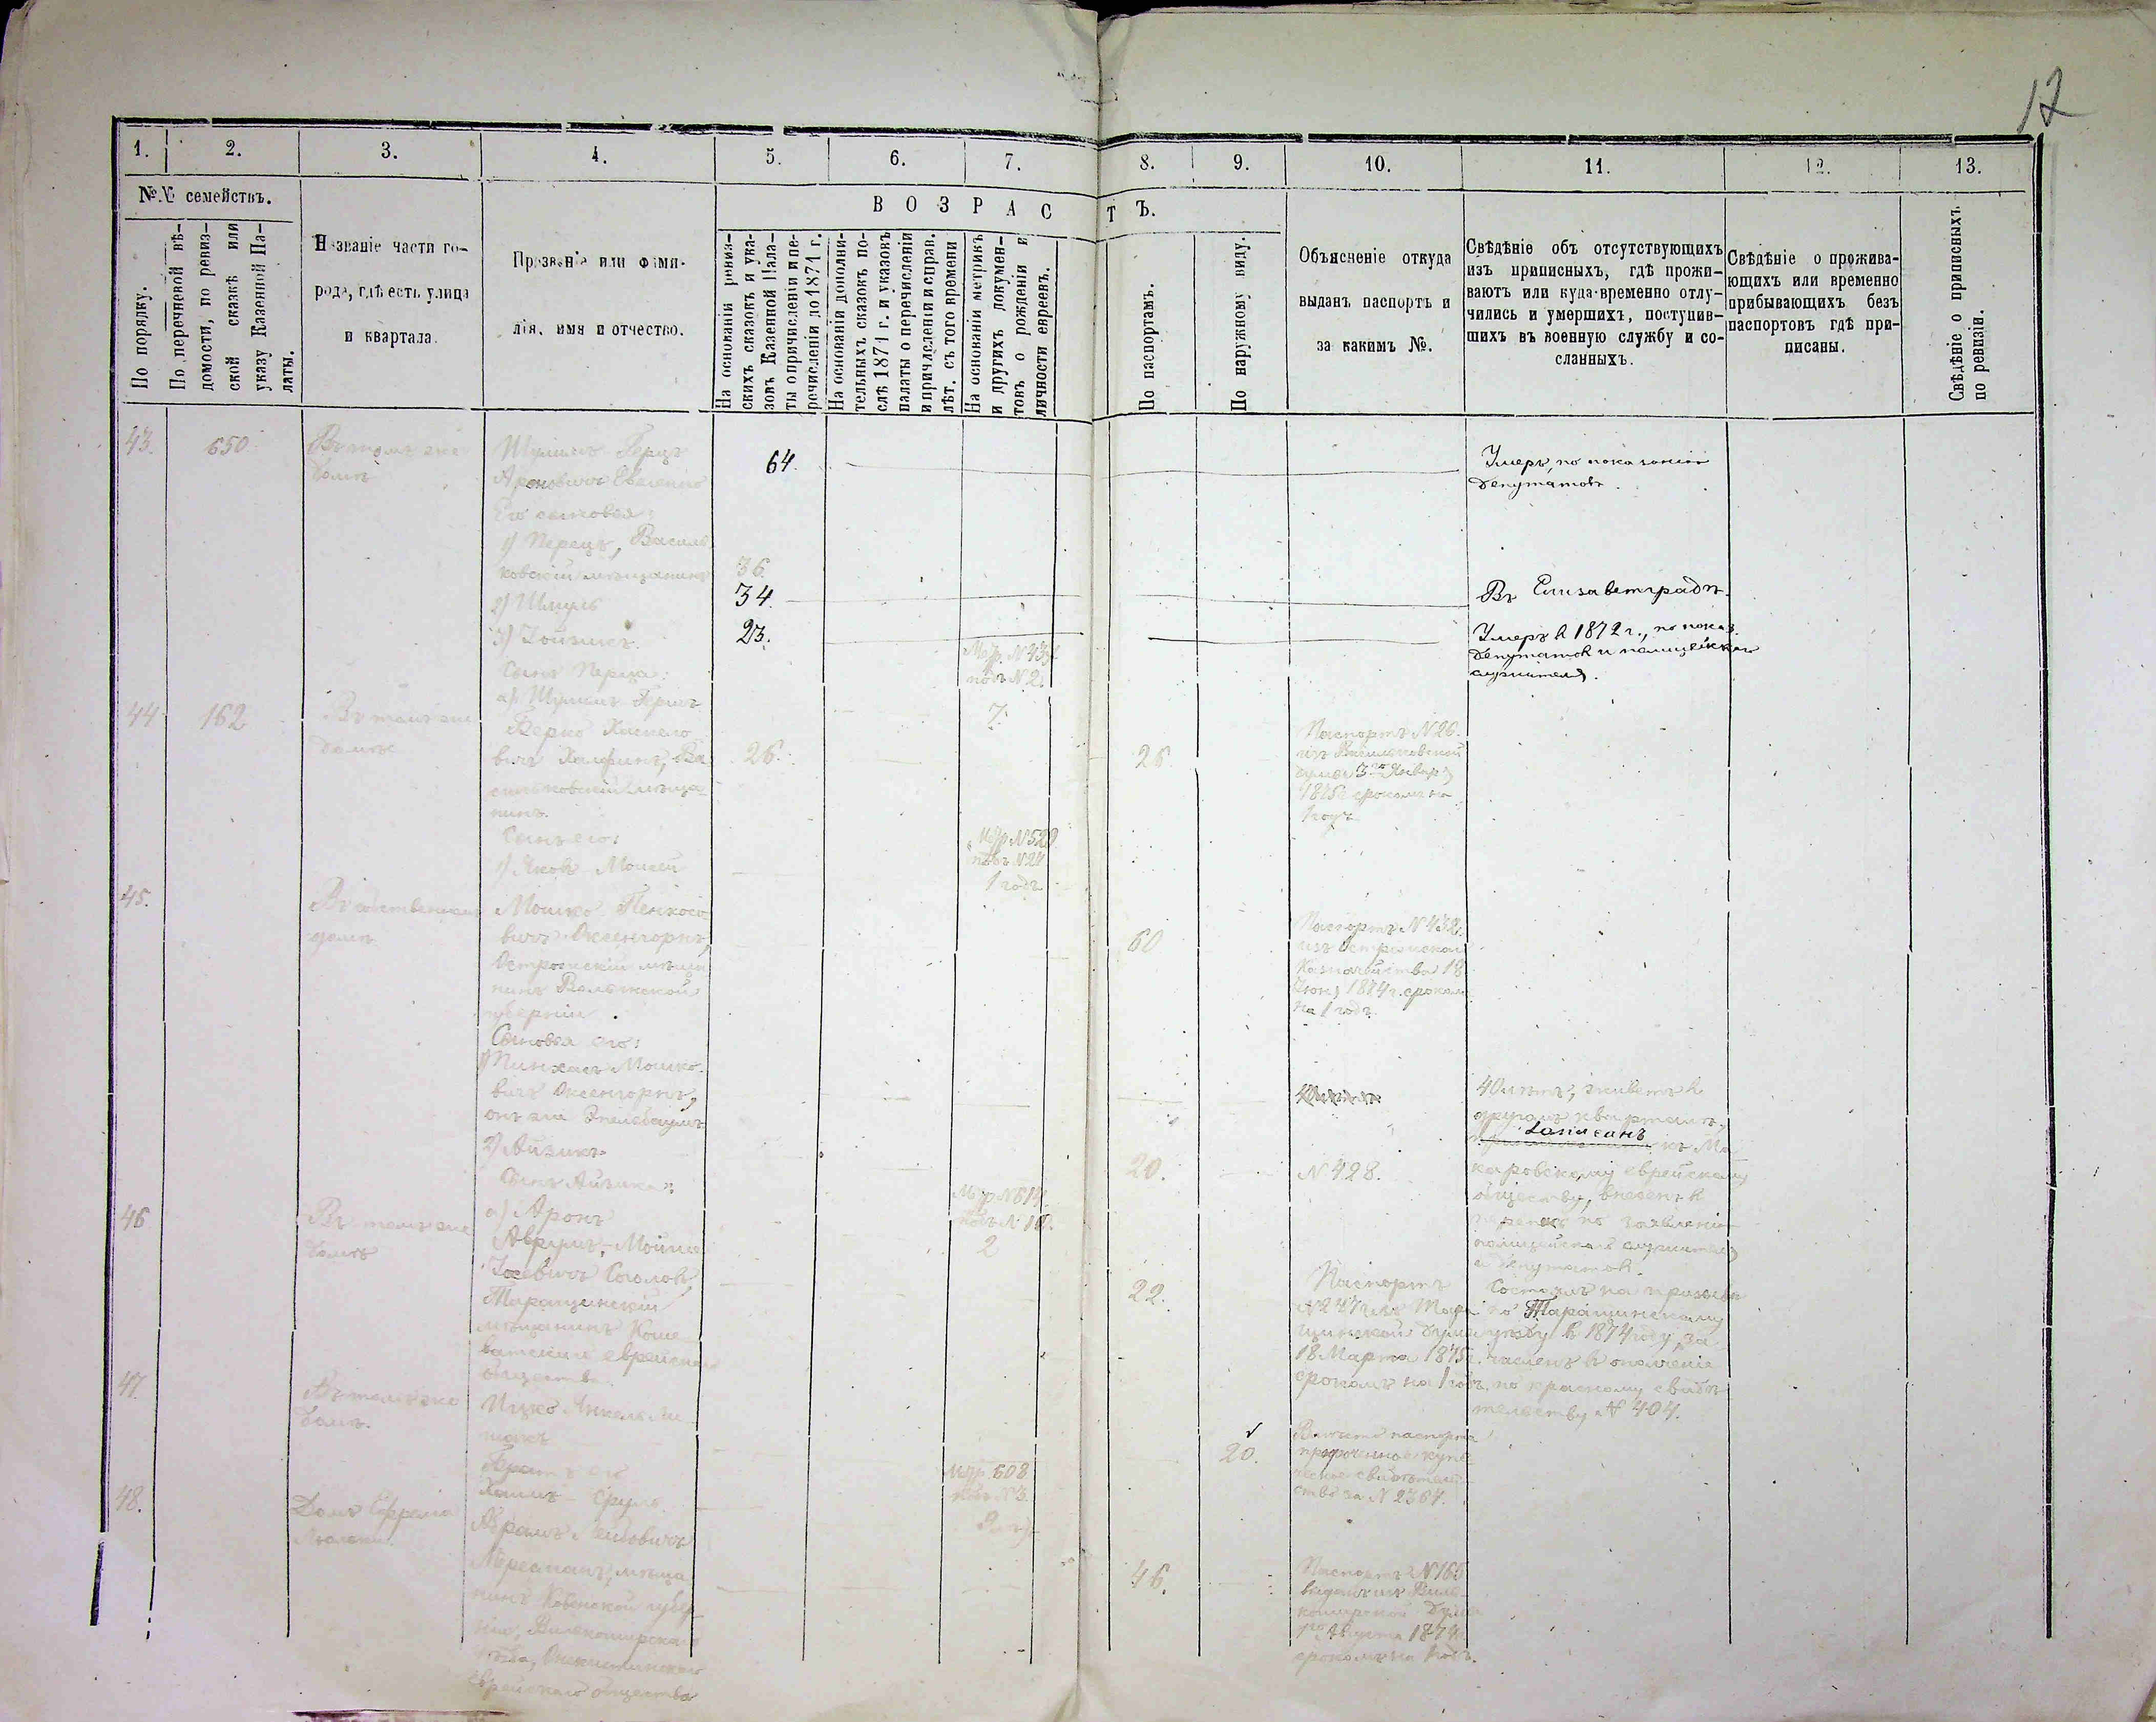 12
1.
2.
3.
4.
5.
6.
7.
8.
9.
10.
11.
12.
13.
№.№ семействъ.
По порядку.
По перечневой вѣ-
домости, по ревиз-
ской сказкѣ или
указу Казенной Па-
латы.
Названіе части го-
рода, гдѣ есть улица
и квартала.
Прозваніе или фами-
лія, имя и отчество.
ВОЗРАСТЪ.
На основаніи ревиз-
скихъ сказокъ и ука-
зовъ Казенной Пала-
ты о причисленіи и пе-
речисленіи до 1871 г.
На основаніи дополни-
тельныхъ сказокъ по-
слѣ 1871 г. и указовъ
палаты о перечисленіи
и причисленіи и справ.
лѣт. съ того времени
На основаніи метрикъ
и другихъ докумен-
товъ о рожденіи и
личности евреевъ.
По паспортамъ.
По наружному виду.
Объясненіе откуда
выданъ паспортъ и
за какимъ №.
Свѣдѣніе объ отсутствующихъ
изъ приписныхъ, гдѣ прожи-
ваютъ или куда временно отлу-
чились и умершихъ, поступив-
шихъ въ военную службу и со-
сланныхъ.
Свѣдѣніе о прожива-
ющихъ или временно
прибывающихъ безъ
паспортовъ гдѣ при-
писаны.
Свѣдѣніе о приписныхъ
по ревизіи.
43.
650
Въ томъ же
домѣ
Шулимъ Герцъ
Ароновичъ
Его сыновья:
1) Перецъ, Василь
ковскій мѣщанинъ
2) Шмуль
3) Зойзмеръ
Сынъ Переца:
а) Шулимъ Гершъ
64.
36.
34.
23.
Метр. N 439
подъ N 2.
7.
Умеръ, по показанію
депутатовъ.
Въ Елизаветградѣ.
Умеръ в 1872 г., по показ.
депутатов и полицейскаго
служителя.
44
162
Въ томъ же
домѣ
Берко Хаскело
вичъ Халфинъ, Ва
сильковскій мѣща-
нинъ.
Сынъ его:
1) Яковъ Мошей
26.
Метр N 529
подъ N 24
1 годъ
26
Паспортъ N 26.
изъ Васильковской
думы 3го Января
1875 г срокомъ на
1 годъ
45.
Въ собственномъ
домѣ
Мошко Пенхосо
вичъ Оксенгорнъ,
Острожскій мѣща
нинъ Волынской
губерніи.
Сыновья его:
1) Пинхасъ Мошко-
вичъ Оксенгорнъ,
онъ же
2) Айзикъ
Сынъ Айзика:
а) Аронъ
Метр N 614
подъ N 10.
2
60
20.
Паспортъ N 432.
изъ Острожскаго
Казначейства 18
Іюня 1874 г. срокомъ
на 1 годъ.
N 428.
40 лѣтъ, живетъ в
другомъ кварталѣ,
записанъ
къ Ма
каровскому еврейскому
обществу, внесенъ в
перепись по заявленію
полицейскаго служителя
и депутатов.
46
Въ томъ же
домѣ
Аврумъ-Мойше
Іосевичъ Соголовъ,
Таращинскій
мѣщанинъ Коше-
ватскаго еврейскаго
общества.
22.
Паспортъ
N 247 изъ Тара
щинской думы
18 Марта 1875 г.
срокомъ на 1 годъ.
Состоялъ на призывѣ
по Таращинскому
уѣзду в 1874 году, за
численъ в ополченіе
по красному свидѣ
тельству N 404.
47
Въ томъ же
домѣ.
Ицко Анкель Ли-
Братъ его
Хаимъ Сруль
Метр. 608
подъ N 3.
20.
Вмѣсто паспорта
просроченное купе-
ческое свидѣтель-
ство за N 2364.
48.
Домъ Ефрема
Абрамъ Лейбовичъ
мѣща
нинъ Ковенской губер-
ніи, Вилькомирскаго
уѣзда, Оникштинскаго
еврейскаго общества
46.
Паспортъ N 165
выданъ изъ Виль
комирской Думы
1го Августа 1874
срокомъ на 1 годъ.